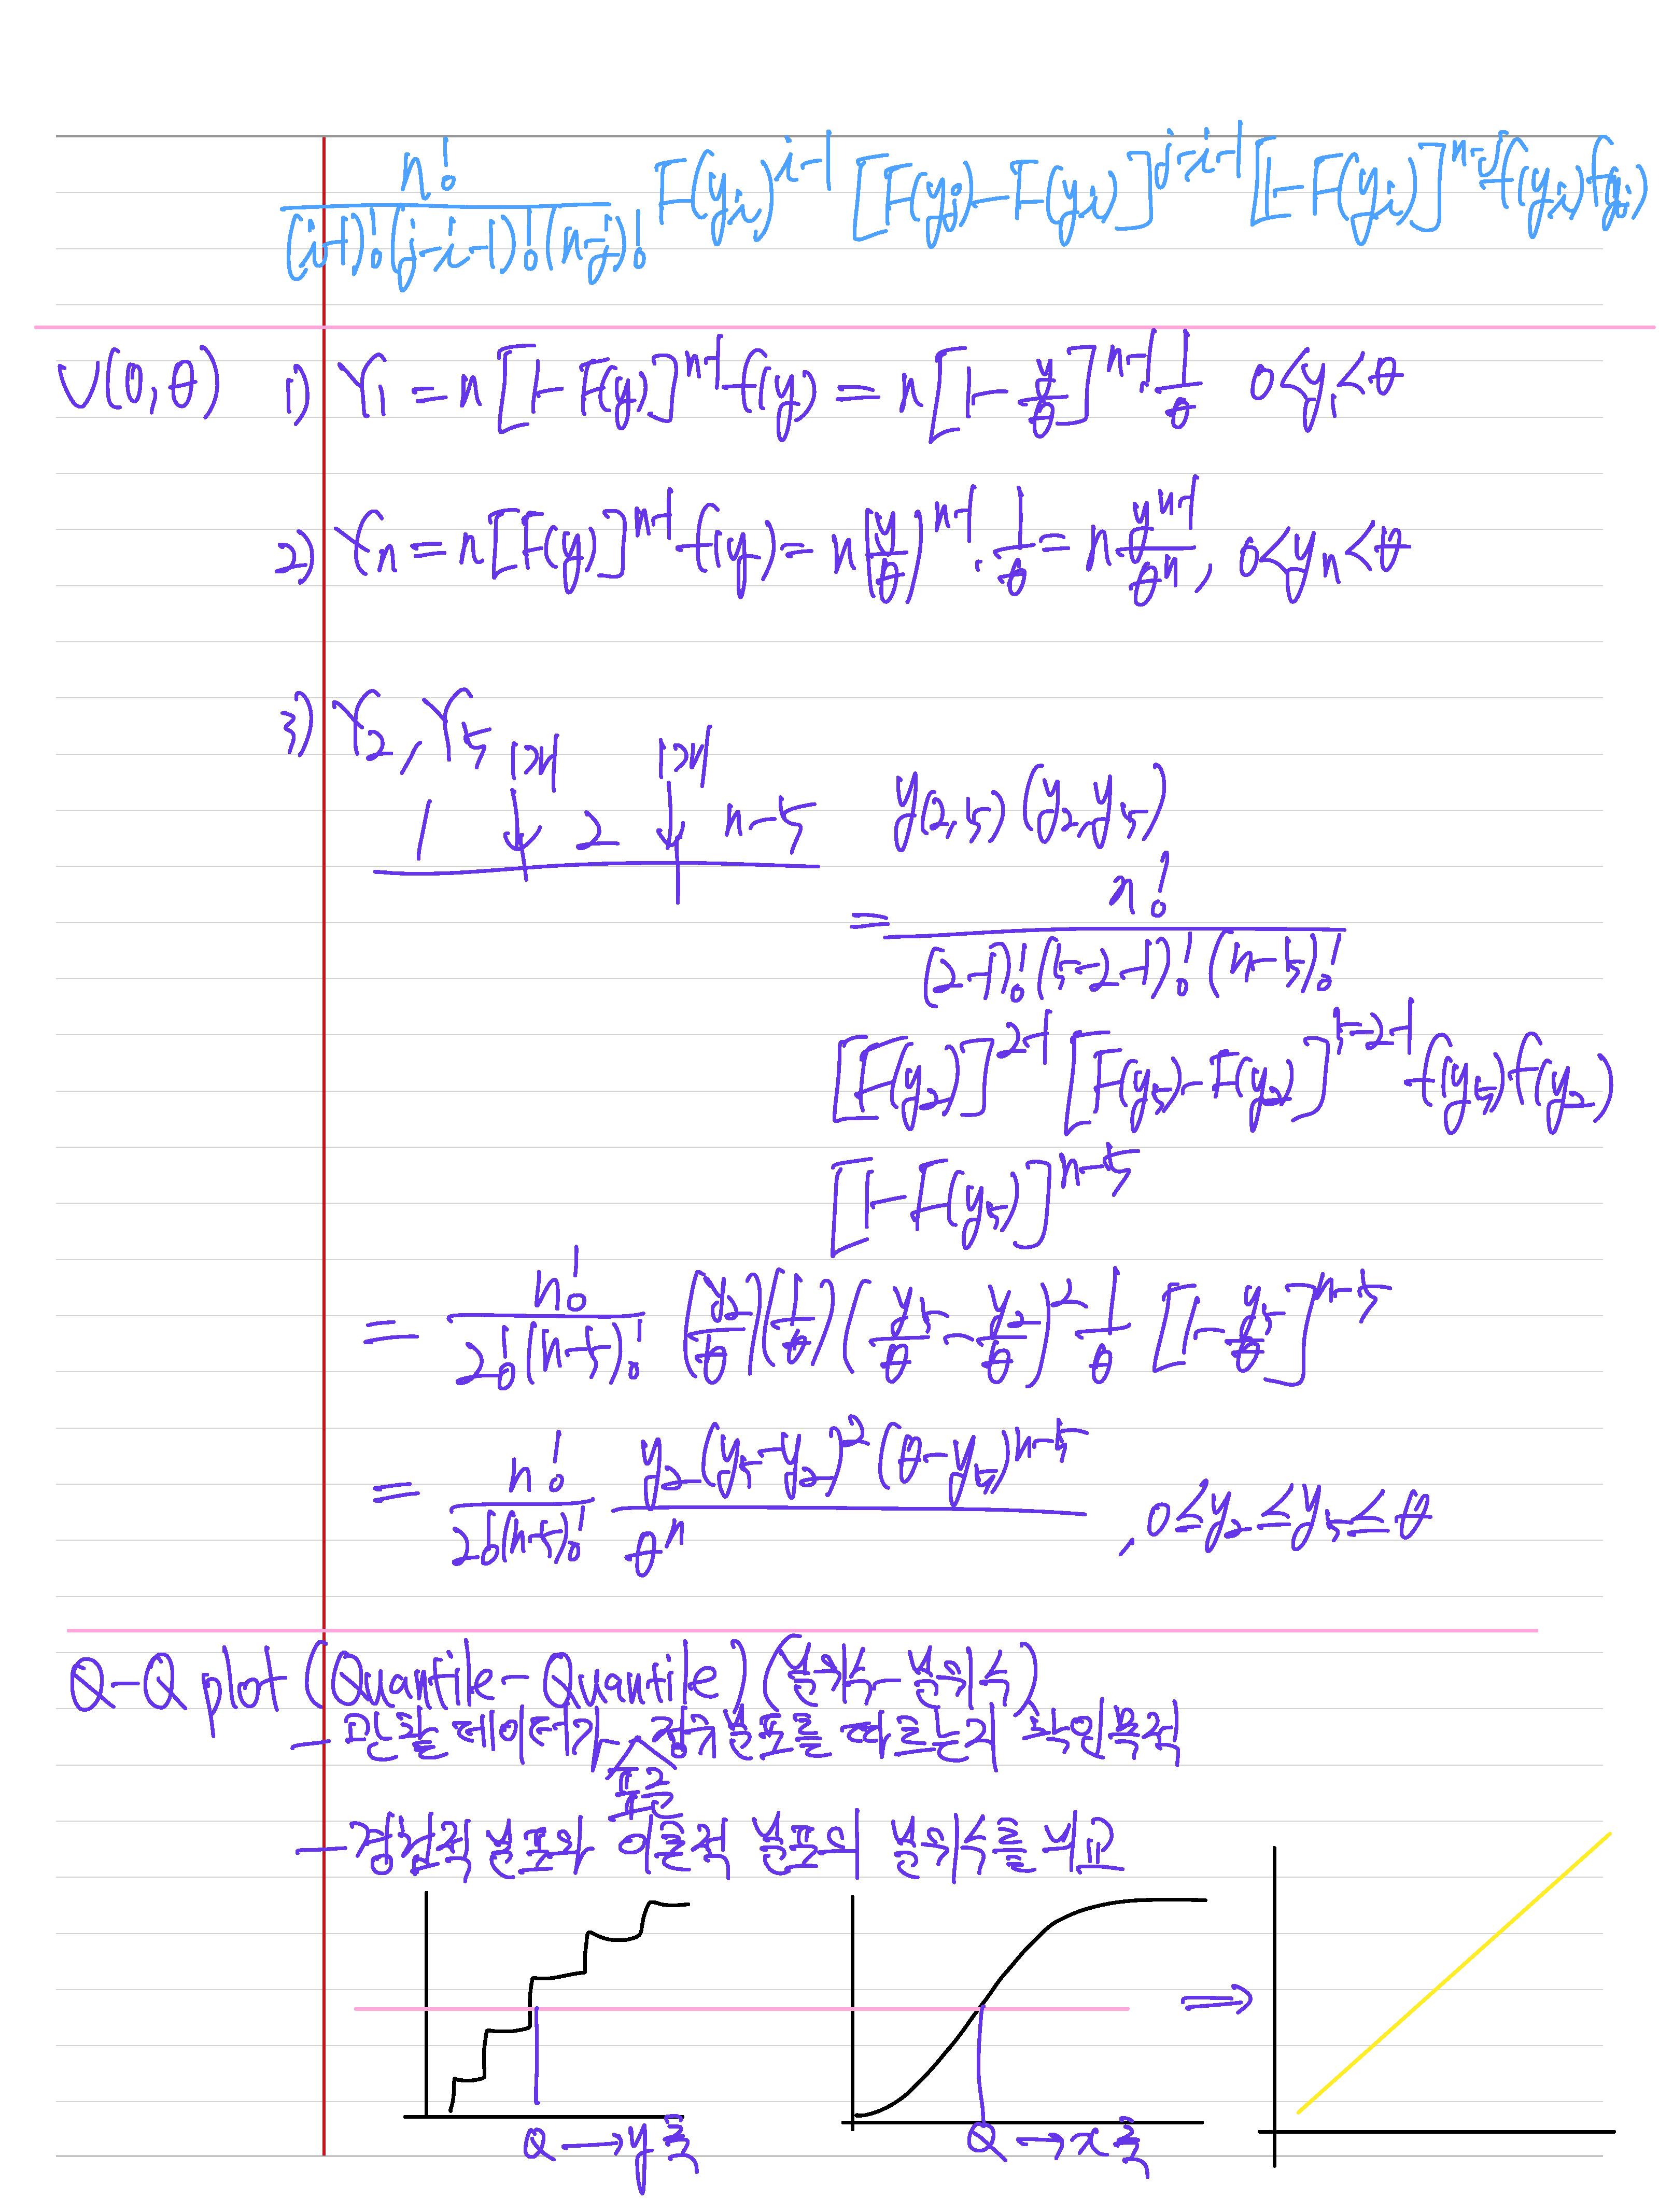 n! / (i-1)!(j-i-1)!(n-j)! F(yi)^{i-1} [F(yj)-F(yi)]^{j-i-1} [1-F(yj)]^{n-j} f(yi)f(yj)
U(0,θ) 1) Y₁ = n[1-F(y)]^{n-1} f(y) = n[1-y/θ]^{n-1} 1/θ 0<y₁<θ
2) Yn = n[F(y)]^{n-1} f(y) = n(y/θ)^{n-1} · 1/θ = n y^{n-1}/θ^n, 0<yn<θ
3) Y₂, Y₅
1개 1개
1 ↓ 2 ↓ n-5 y(2,5) (y₂,y₅)
= n! / (2-1)!(5-2-1)!(n-5)!
[F(y₂)]^{2-1} [F(y₅)-F(y₂)]^{5-2-1} f(y₅)f(y₂)
[1-F(y₅)]^{n-5}
= n! / 2!(n-5)! (y₂/θ)(1/θ)(y₅/θ - y₂/θ)² 1/θ [1-y₅/θ]^{n-5}
= n! / 2!(n-5)! y₂(y₅-y₂)²(θ-y₅)^{n-5} / θ^n , 0≤y₂≤y₅≤θ
Q-Q plot (Quantile-Quantile) (분위수-분위수)
- 관찰 데이터가 정규분포를 따르는지 확인목적
표준
- 경험적 분포와 이론적 분포의 분위수를 비교
⇒
Q → y축 Q → x축